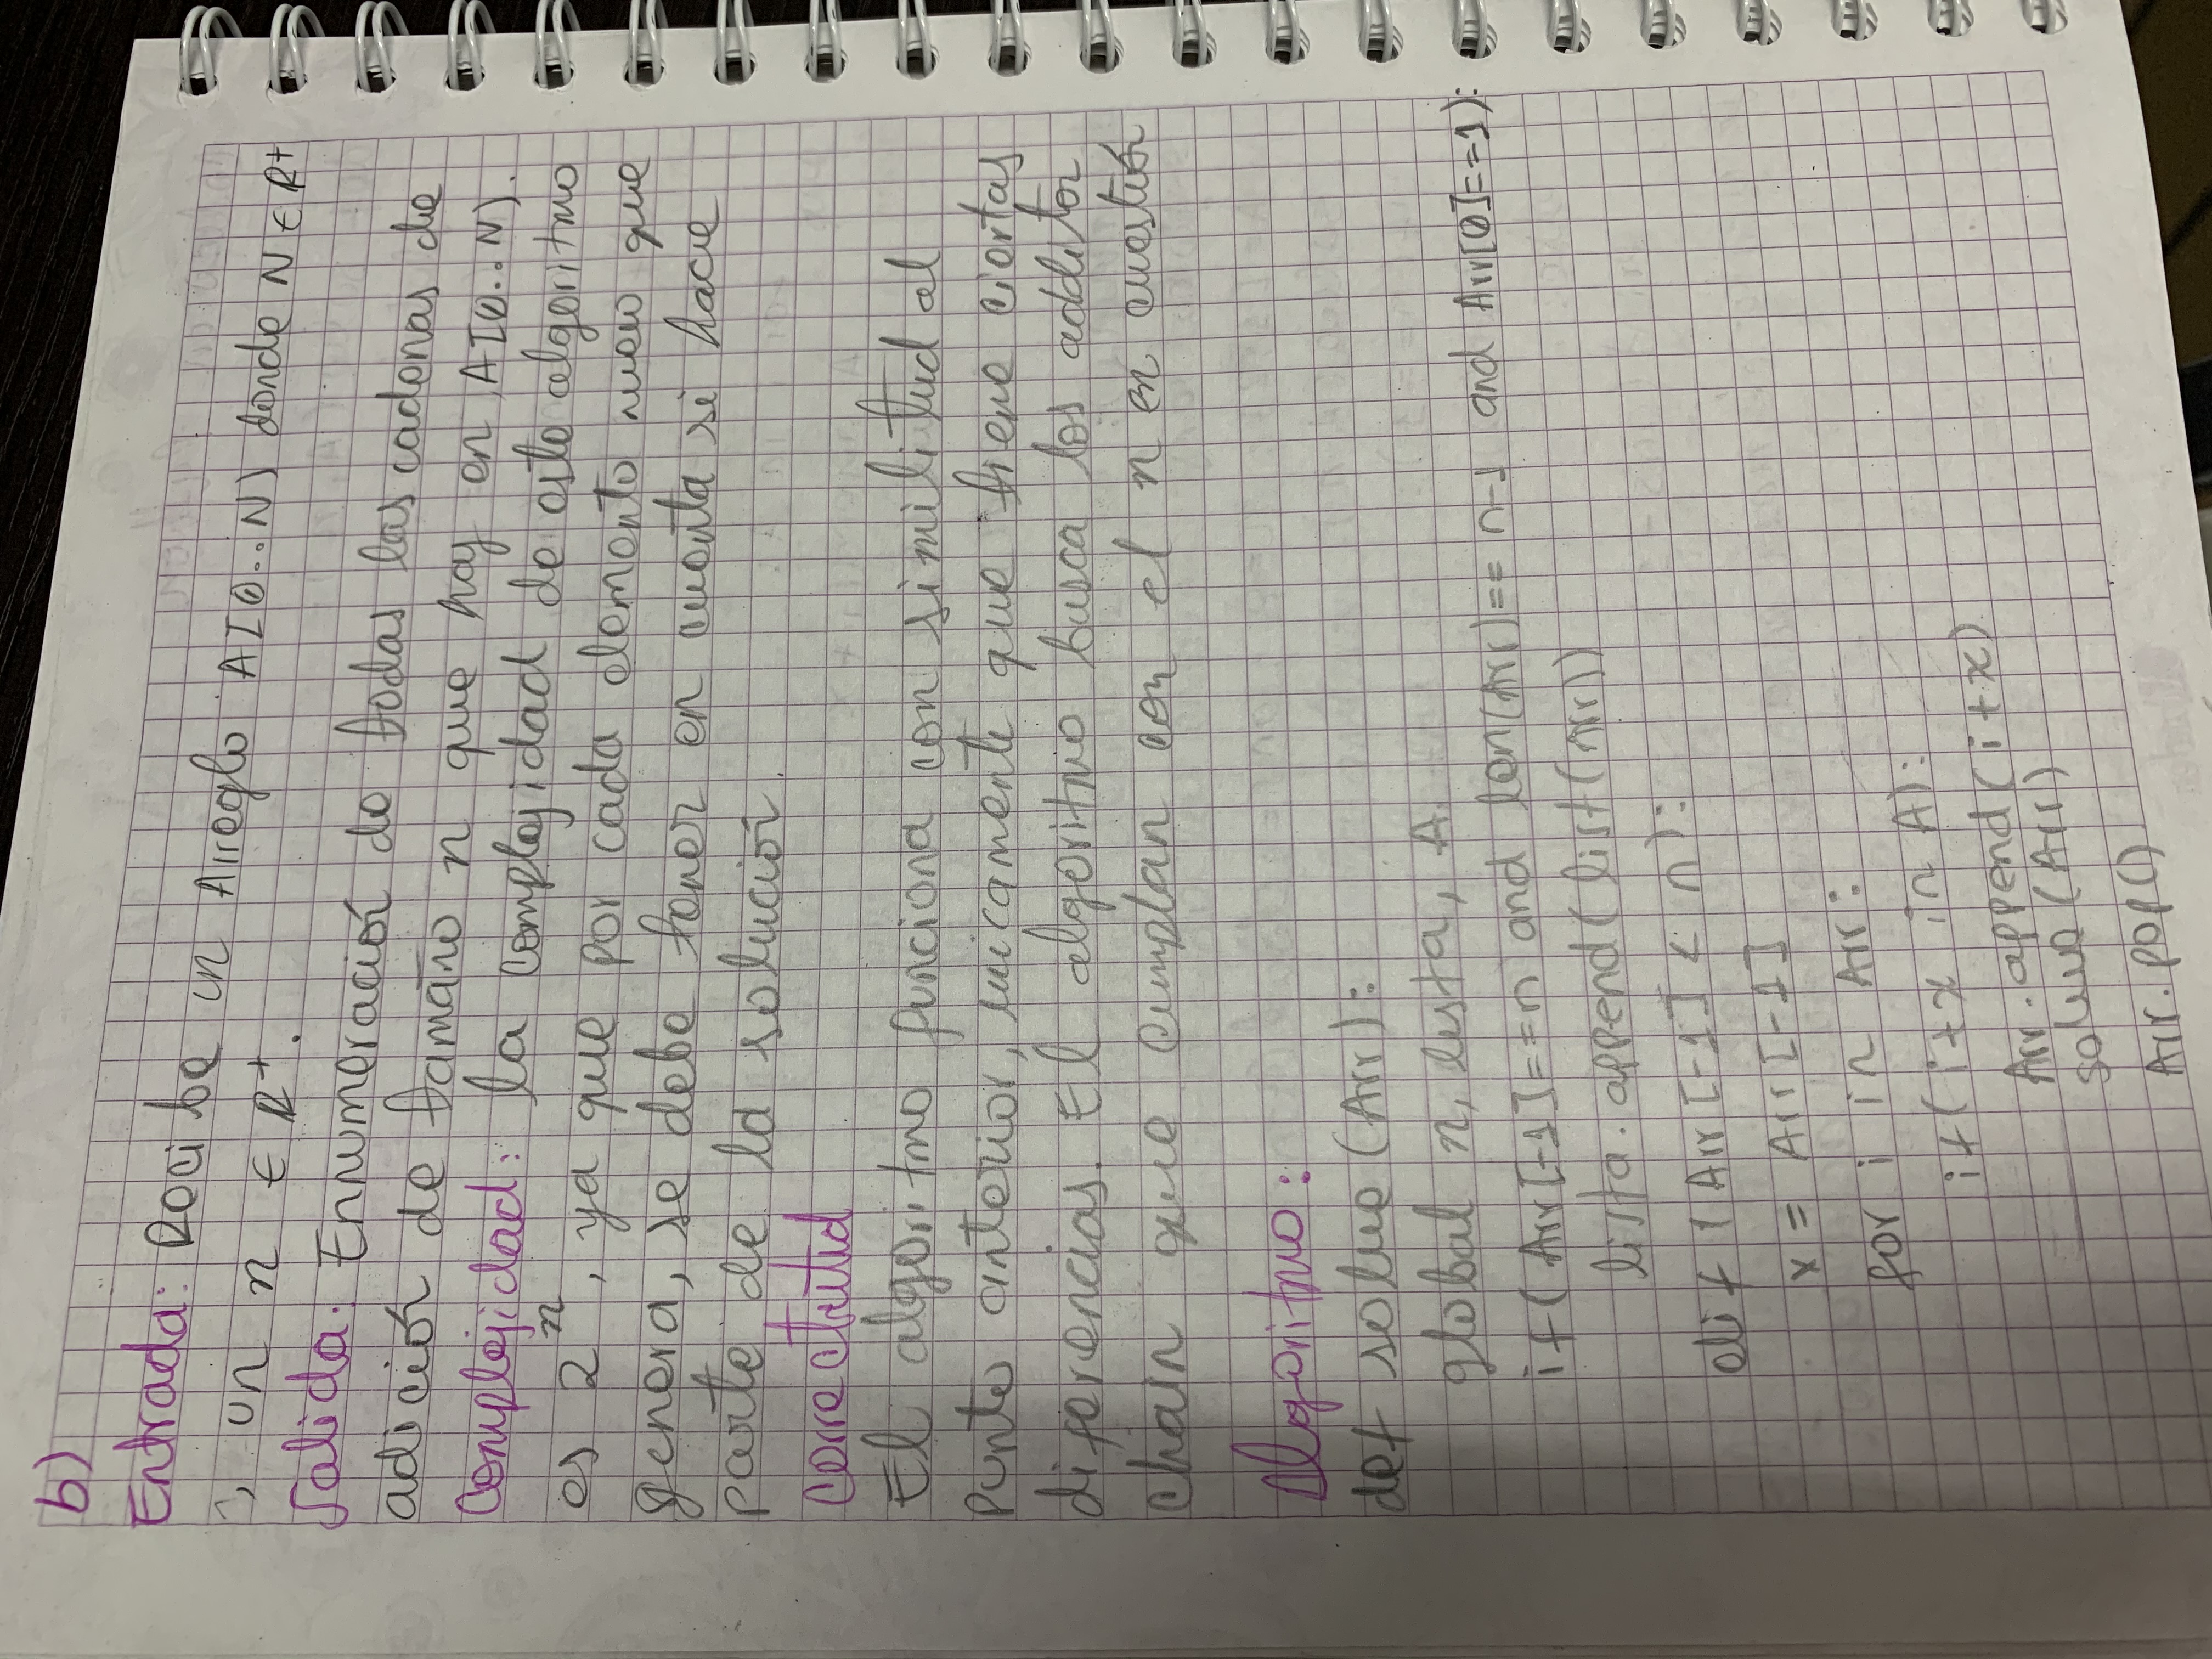 b)
Entrada: Recibe un Arreglo A[0..N) donde N ∈ R+
, un n ∈ R+.
Salida: Ennumeración de todas las cadenas de
adición de tamaño n que hay en A[0..N).
Complejidad: la complejidad de este algoritmo
es 2^n, ya que por cada elemento nuevo que
genera, se debe tener en cuenta si hace
parte de la solución.
Correctitud
El algoritmo funciona con similitud al
punto anterior, unicamente que tiene ciertas
diferencias. El algoritmo busca los addition
chain que cumplan con el n en cuestión
Algoritmo:
def solve (Arr):
global n, lista, A.
if( Arr[-1]==n and len(Arr)== n-1 and Arr[0]==1):
lista.append(list(Arr))
elif (Arr[-1] < n):
x = Arr[-1]
for i in Arr:
if( i+x in A):
Arr.append(i+x)
solve(Arr)
Arr.pop()